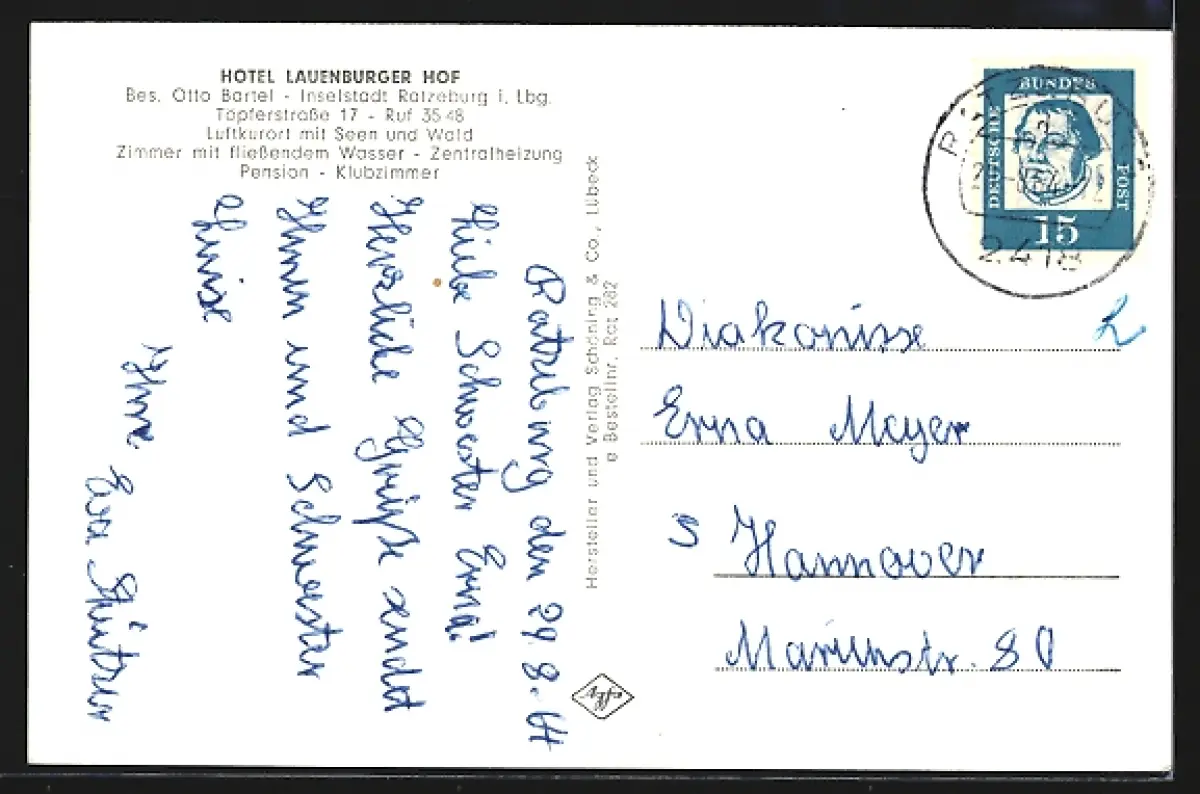 HOTEL LAUENBURGER HOF
Bes. Otto Bartel - Inselstadt Ratzeburg i. Lbg.
Töpferstraße 17 - Ruf 3548
Luftkurort mit Seen und Wald
Zimmer mit fließendem Wasser - Zentralheizung
Pension - Klubzimmer
Ratzeburg den 29.8.64
Liebe Schwester Erna!
Herzliche Grüße sendet
Ihnen und Schwester
Luise
Ihre
Eva
Hersteller und Verlag Schöning & Co., Lübeck
Bestellnr. Rat 282
Agfa
DEUTSCHE
BUNDES
POST
15
2418
L
Diakonisse
Erna Meyer
3 Hannover
Marienstr. 80